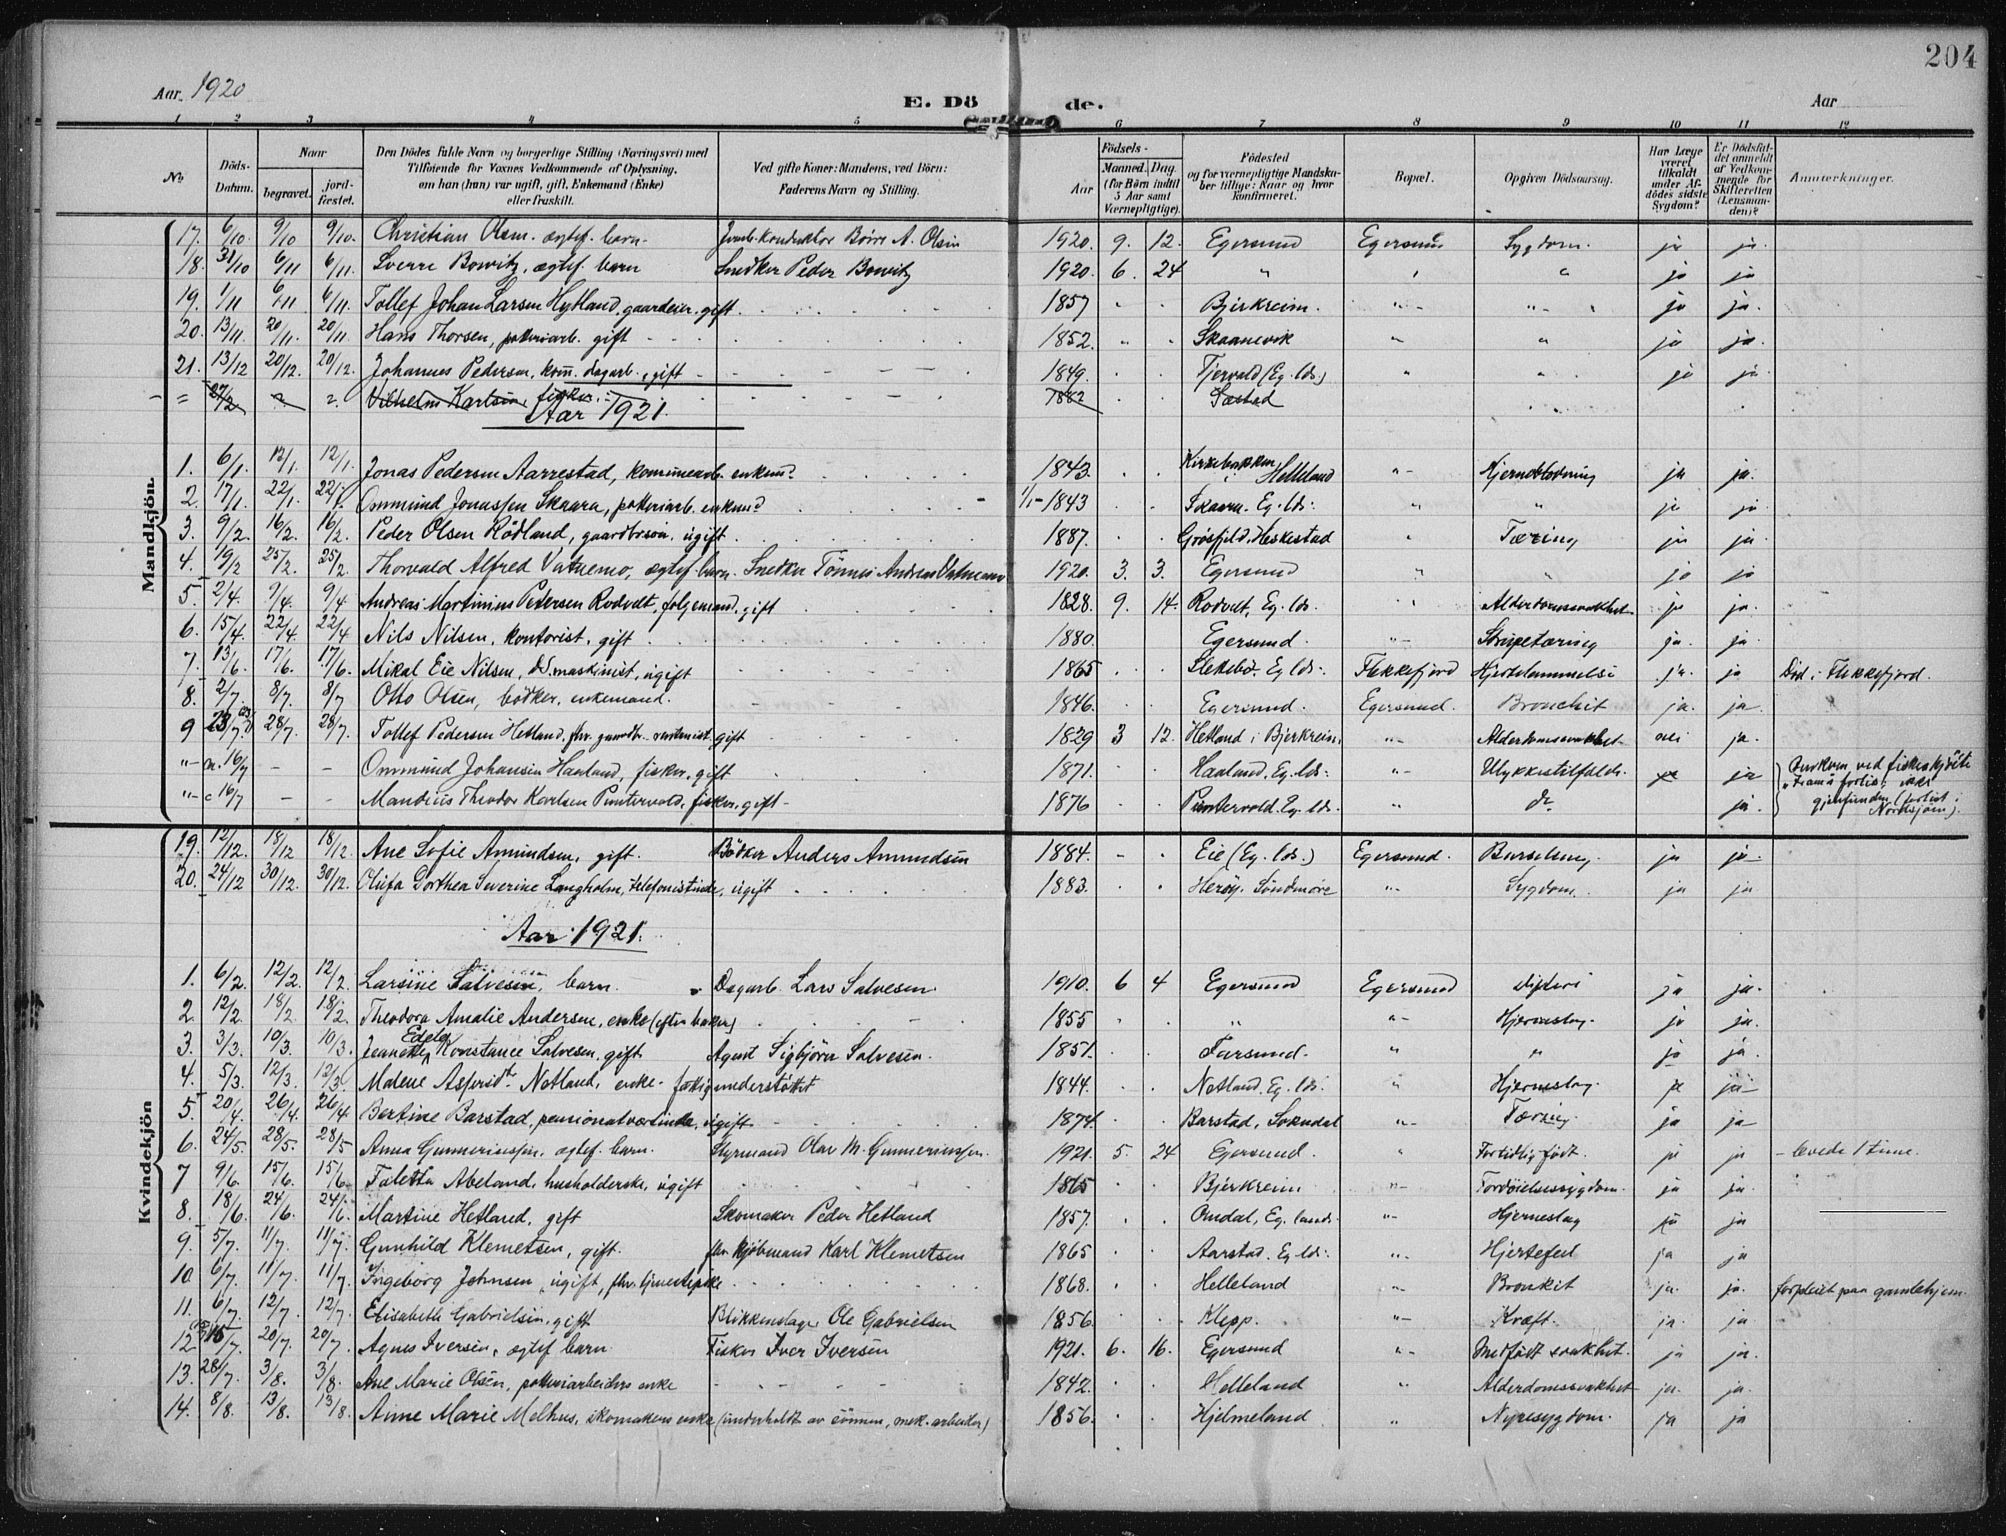 204
Aar 1920 E. Dö de. Aar
1 2 3 4 5 6 7 8 9 10 11 12
No Döds-Datum. Naar begravet. jordfæstet. Den Dödes fulde Navn og borgerlige Stilling (Næringsvei) med Tilföiende for Voxnes Vedkommende af Oplysning, om han (hun) var ugift, gift, Enkemand (Enke) eller fraskilt. Ved gifte Koner: Mandens, ved Börn: Faderens Navn og Stilling. Födsels- Aar Maaned. Dag. (for Börn indtil 5 Aar samt Værnepligtige). Födested og for værnepligtige Mandskaber tillige: Naar og hvor konfirmeret. Bopæl. Opgiven Dödsaarsag. Har Læge været tilkaldt under Afdödes sidste Sygdom? Er Dödsfaldet anmeldt af Vedkommende for Skifteretten (Lensmanden)? Anmærkninger.
Mandkjön.
17. 6/10 9/10 9/10. Christian Olsen. ægtef. barn Jernb. konduktør Børre A. Olsen 1920. 9. 12. Egersund Egersund Sygdom. ja ja.
18. 31/10 6/11 6/11. Sverre Bowitz, ægtef. barn Snedker Peder Bowitz 1920. 6. 24 " " " ja ja
19. 1/11 6/11 6/11. Tollef Johan Larsen Hytland, gaardeier, gift 1857 Bjerkreim. " " ja ja.
20. 13/11. 20/11. 20/11. Hans Thorsen, potteriarb. gift 1852. Skaanevik " " ja ja.
21. 13/12 20/12. 20/12. Johannes Pedersen, kom. dagarb., gift 1849. Tjervald (Eg. lds.) " " ja ja.
" 27/2 Vilhelm Karlsen, fisker. 1882 Sæstad
Aar 1921.
1. 6/1. 12/1. 12/1. Jonas Pedersen Aarrestad, kommunearb. enkemd 1843. Kirkebakken, Helleland "- Hjerneblødning ja ja.
2. 17/1. 22/1. 22/1. Ommund Jonassen Skaara, potteriarb. enkemd 1/1- 1843 Skaara. Eg. lds. " " ja ja
3. 9/2. 16/2. 16/2. Peder Olsen Rödland, gaardbrsøn, ugift 1887. Grösfjeld, Heskestad " Tæring ja ja.
4. 19/2 25/2. 25/2. Thorvald Alfred Vatnemo, ægtef. barn. Snedker Tönnes Andreas Vatnemo 1920. 3. 3. Egersund " " ja ja
5. 2/4. 9/4. 9/4. Andreas Martinius Pedersen Rodvelt, folgemand, gift 1828. 9. 14. Rodvelt, Eg. lds. " Alderdomssvakhet ja ja.
6. 15/4. 22/4. 22/4 Nils Nilsen, kontorist, gift 1880. Egersund. "- Strupetæring ja. ja
7. 13/6 17/6. 17/6. Mikal Eie Nilsen, DS. maskinist, ugift 1865 Slettebö Eg. lds. Flekkefjord Hjertelammelse ja. ja Död i Flekkefjord.
8. 2/7 8/7. 8/7 Otto Olsen, bödker, enkemand. 1846. Egersund. Egersund. Bronchit ja. ja
9 23/7. 28/7. 28/7. Tollef Pedersen Hetland, fhv. gaardbr. gift 1829 3 12. Hetland i Bjerkreim. "- Alderdomssvakhet nei ja.
"- 16/7 – – Ommund Johansen Haaland, fisker, gift 1871. Haaland, Eg. lds. "- Ulykkestilfælde. ja Omkom ved fiskeskjöite
"- 16/7 – – Mandius Theodor Karlsen Puntervold, fisker, gift- 1876 Puntervold. Eg. lds. " do ja. forlis; ikke gjenfunden (forlist i Nordsjöen).
Kvindekjön
19. 12/12. 18/12 18/12. Ane Sofie Amundsen, gift. Bödker Anders Amundsen 1884. Eie (Eg. lds.) Egersund. Barselseng. ja ja
20. 24/12 30/12. 30/12. Olufa Dorthea Severine Langholm, telefonistinde, ugift 1883. Heröy. Söndmöre "- Sygdom. ja ja
Aar 1921.
1. 6/2. 12/2. 12/2 Larsine Salvesen, barn. Dagarb. Lars Salvesen 1910. 6 4 Egersund Egersund difteri ja ja.
2. 12/2. 18/2. 18/2. Theodora Amalie Andersen, enke (efter baker) 1855 " "- Hjerneslag. ja ja.
3. 3/3. 10/3. 10/3. Jeanette Edele Konstance Salvesen, gift Agent Sigbjörn Salvesen. 1851. Farsund. " " ja ja.
4. 5/3. 12/3. 12/3. Malene Asperidt Netland, enke. fattigunderstöttet 1844. Netland. Eg. lds. " Hjerneslag. ja ja
5. 20/4. 26/4. 26/4 Bertine Barstad, pensionatværtinde, ugift 1874. Barstad, Sokndal "- Tæring ja ja
6. 24/5. 28/5. 28/5 Anna Gunnerius­sen, ægtef. barn. Styrmand Olav M. Gunneriussen. 1921. 5. 24 Egersund. " Fortidlig födt. ja ja - levede 1 time.
7 9/6. 15/6. 15/6 Taletta Abeland, husholderske, ugift 1865 Bjerkreim "- Fordöielsessygdom. ja ja
8. 18/6. 24/6. 24/6. Martine Hetland, gift Skomaker Peder Hetland 1857. Omdal, Eg. lands. "- Hjerneslag ja ja
9. 5/7. 11/7. 11/7. Gunhild Klemetsen, gift. fhv. kjöbmand Karl Klemetsen 1865 Aarstad. Eg. lds. "- Hjertefeil ja ja
10. 6/7. 11/7. 11/7. Ingeborg Johnsen, ugift, fhv. tjenestepike 1868. Helleland "- Bronkit ja. ja. forpleiet paa gamlehjem
11. 6/7 12/7. 12/7. Elisabeth Gabrielsen, gift Blikkenslager Ole Gabrielsen 1856. Klepp. "- Kræft. ja. ja
12 15/7. 20/7. 20/7. Agnes Iversen, ægtef barn. Fisker Iver Iversen 1921. 6. 16. Egersund "- Medfödt svakhet. ja ja.
13. 28/7 3/8. 3/8. Ane Marie Olsen, potteriarbeiders enke 1842. Helleland " Alderdomssvakhet ja. ja
14. 8/8. 13/8. 13/8. Anne Marie Melhus, skomakers enke (underholdt av sönnen, mek. arbeider) 1856. Hjelmeland " Nyresygdom. ja ja